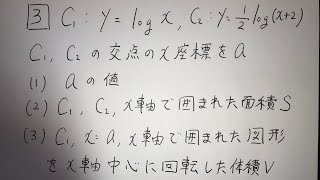 3 C₁: y = log x, C₂: y = 1/2 log(x+2)
C₁, C₂ の交点のx座標をa
(1) aの値
(2) C₁, C₂, x軸で囲まれた面積S
(3) C₁, x=a, x軸で囲まれた図形
をx軸中心に回転した体積V